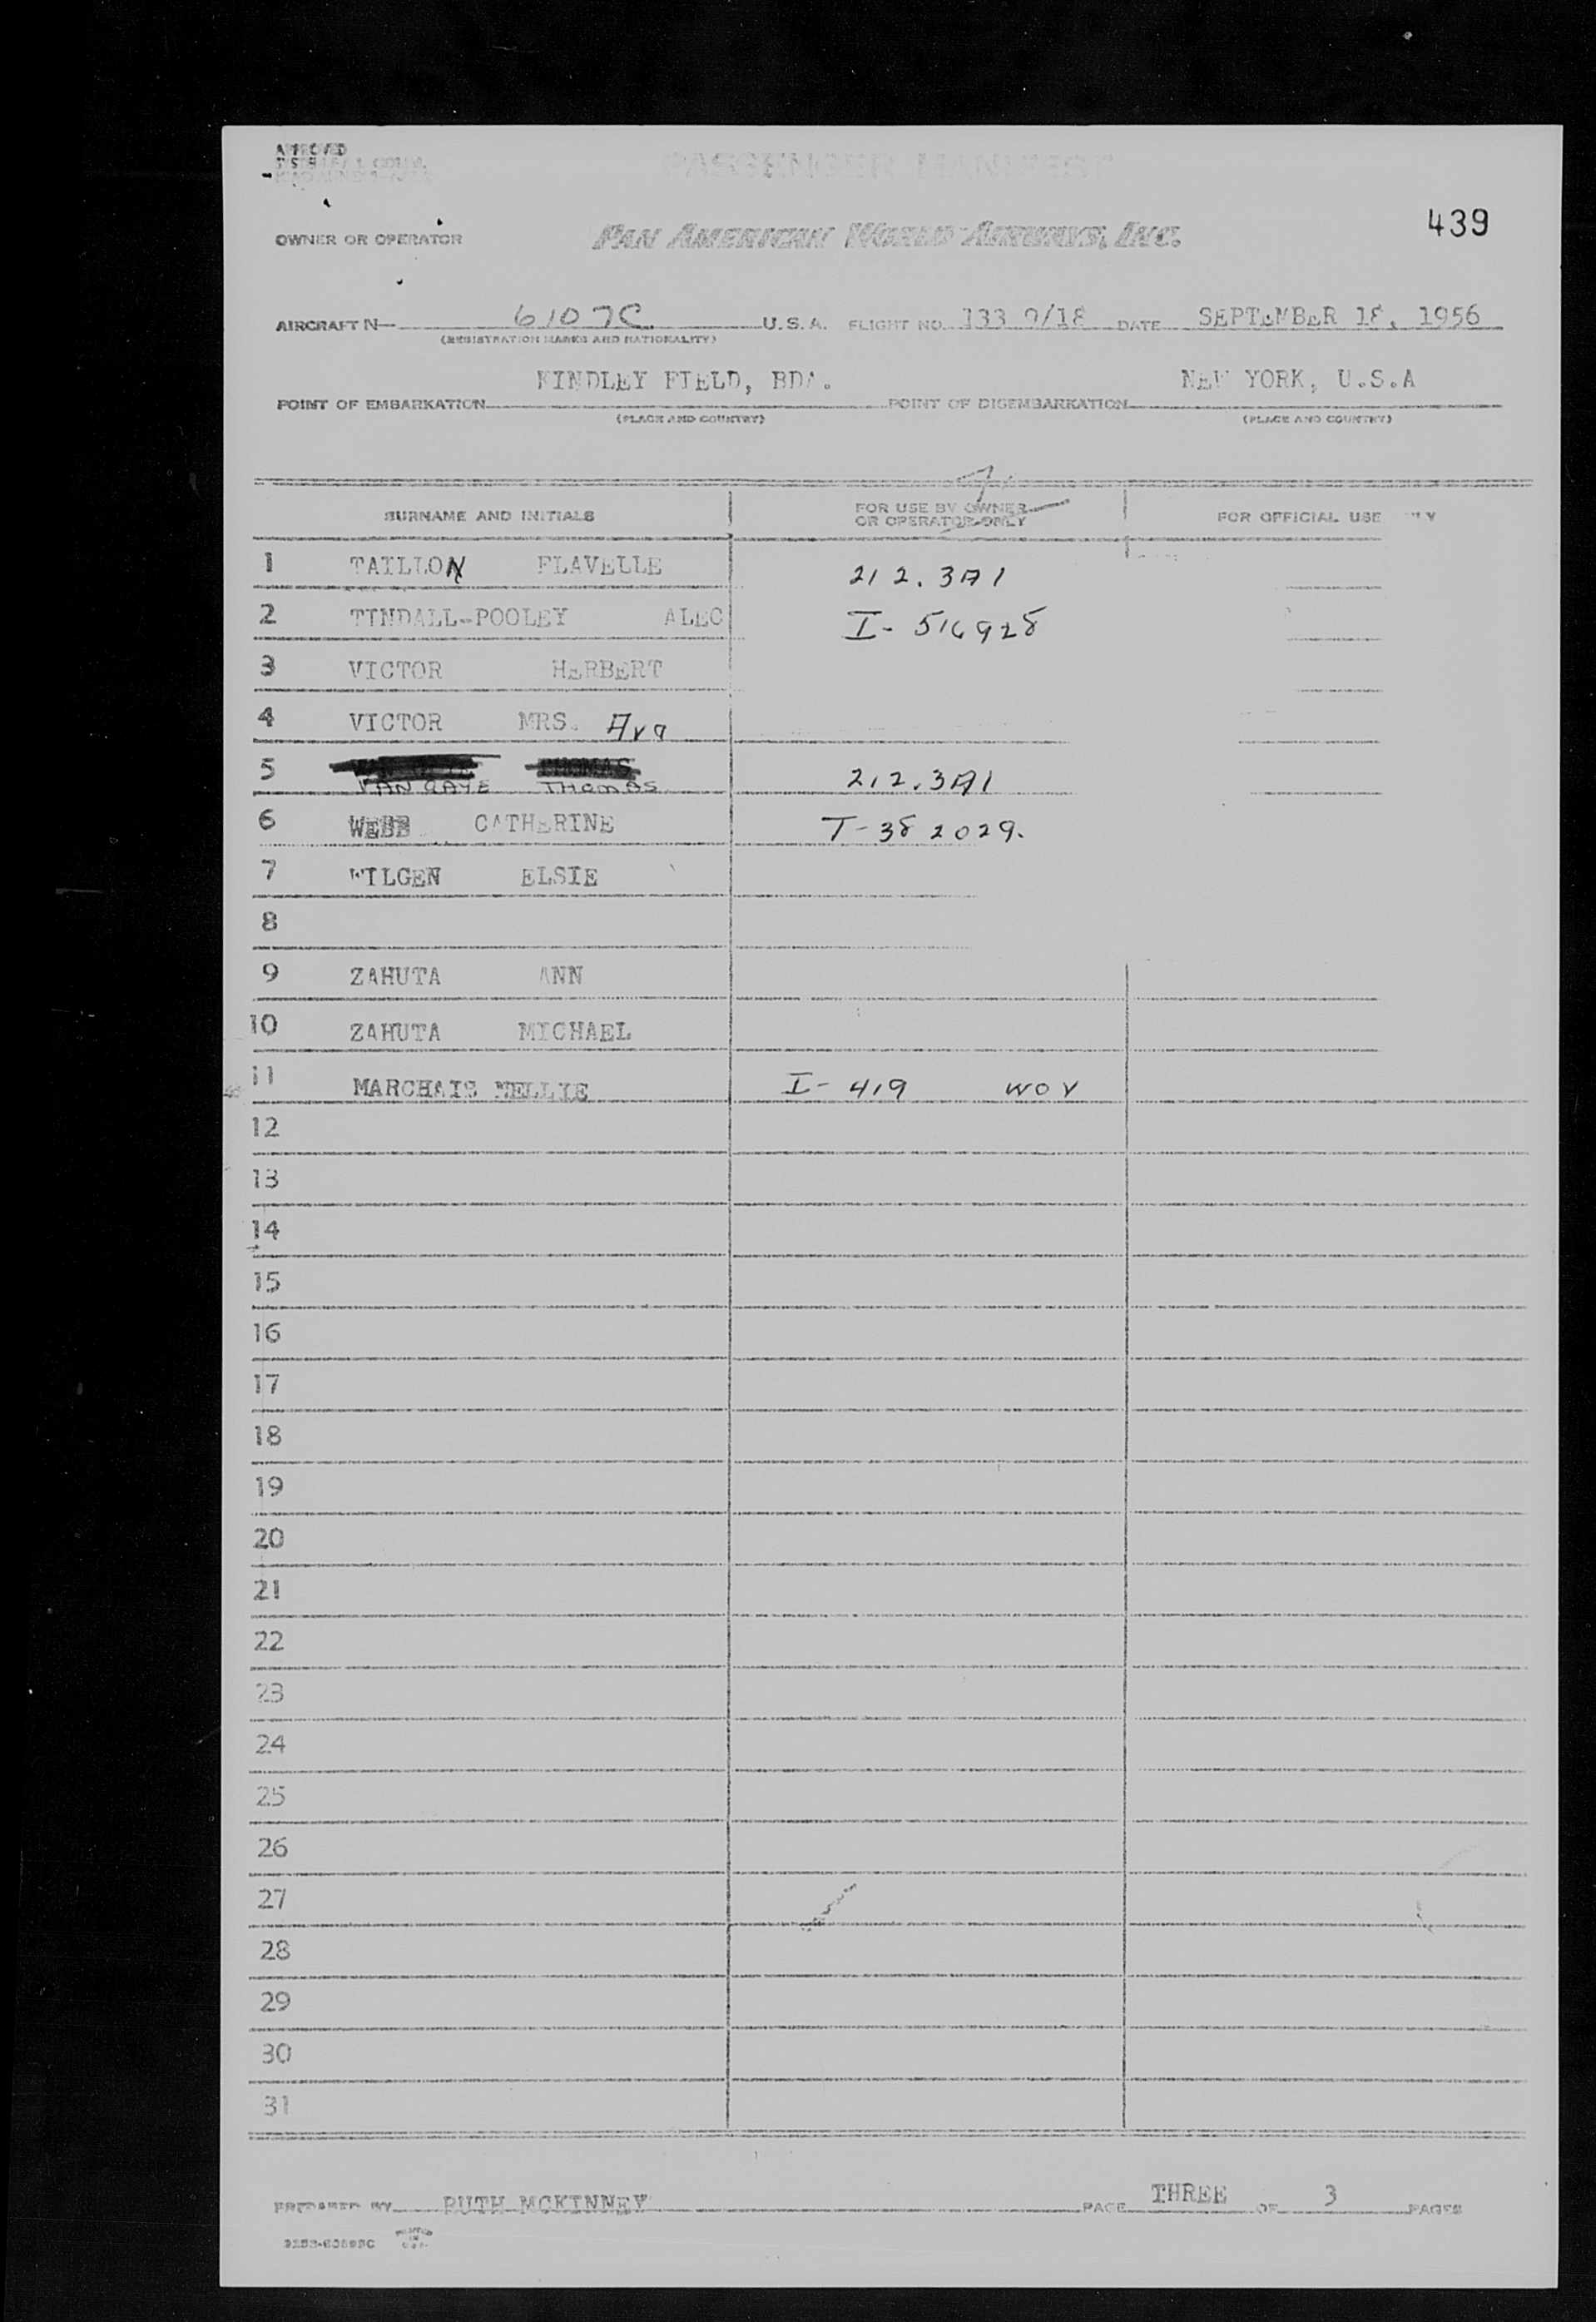 APPROVED
PASSENGER MANIFEST
439
OWNER OR OPERATOR PAN AMERICAN WORLD AIRWAYS, INC.
AIRCRAFT N- 6107C U.S.A. FLIGHT NO. 133 9/18 DATE SEPTEMBER 18, 1956
(REGISTRATION MARKS AND NATIONALITY)
KINDLEY FIELD, BDA. NEW YORK, U.S.A
POINT OF EMBARKATION POINT OF DISEMBARKATION
(PLACE AND COUNTRY) (PLACE AND COUNTRY)
SURNAME AND INITIALS FOR USE BY OWNER OR OPERATOR ONLY FOR OFFICIAL USE
1 TAILLON FLAVELLE 212.3A1
2 TINDALL-POOLEY ALEC I-516928
3 VICTOR HERBERT
4 VICTOR MRS. Ava
5 THOMAS
VAN GAYE THOMAS 212.3A1
6 WEBB CATHERINE T-382029.
7 WILGEN ELSIE
8
9 ZAHUTA ANN
10 ZAHUTA MICHAEL
11 MARCHAIS NELLIE I-419 WOV
12
13
14
15
16
17
18
19
20
21
22
23
24
25
26
27
28
29
30
31
PREPARED BY RUTH MCKINNEY PAGE THREE OF 3 PAGES
PRINTED IN U.S.A.